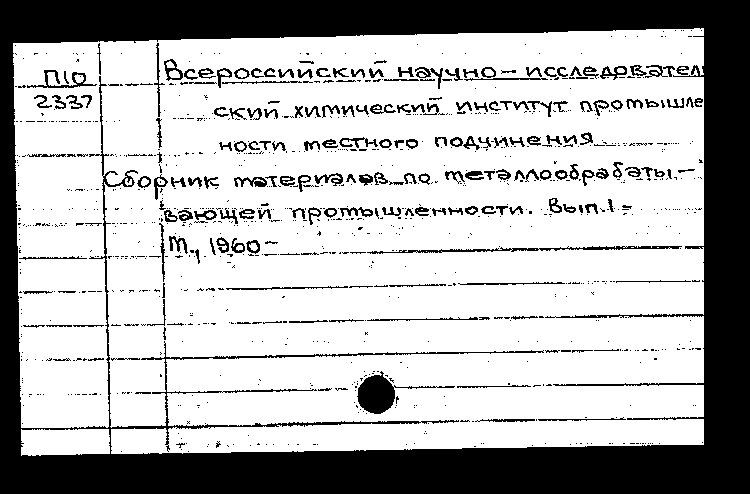 П10
2337
Всероссийский научно-исследовател
ский химический институт промышле
ности местного подчинения
Сборник материалов по металлообрабаты-
вающей промышленности. Вып.1-
М., 1960-